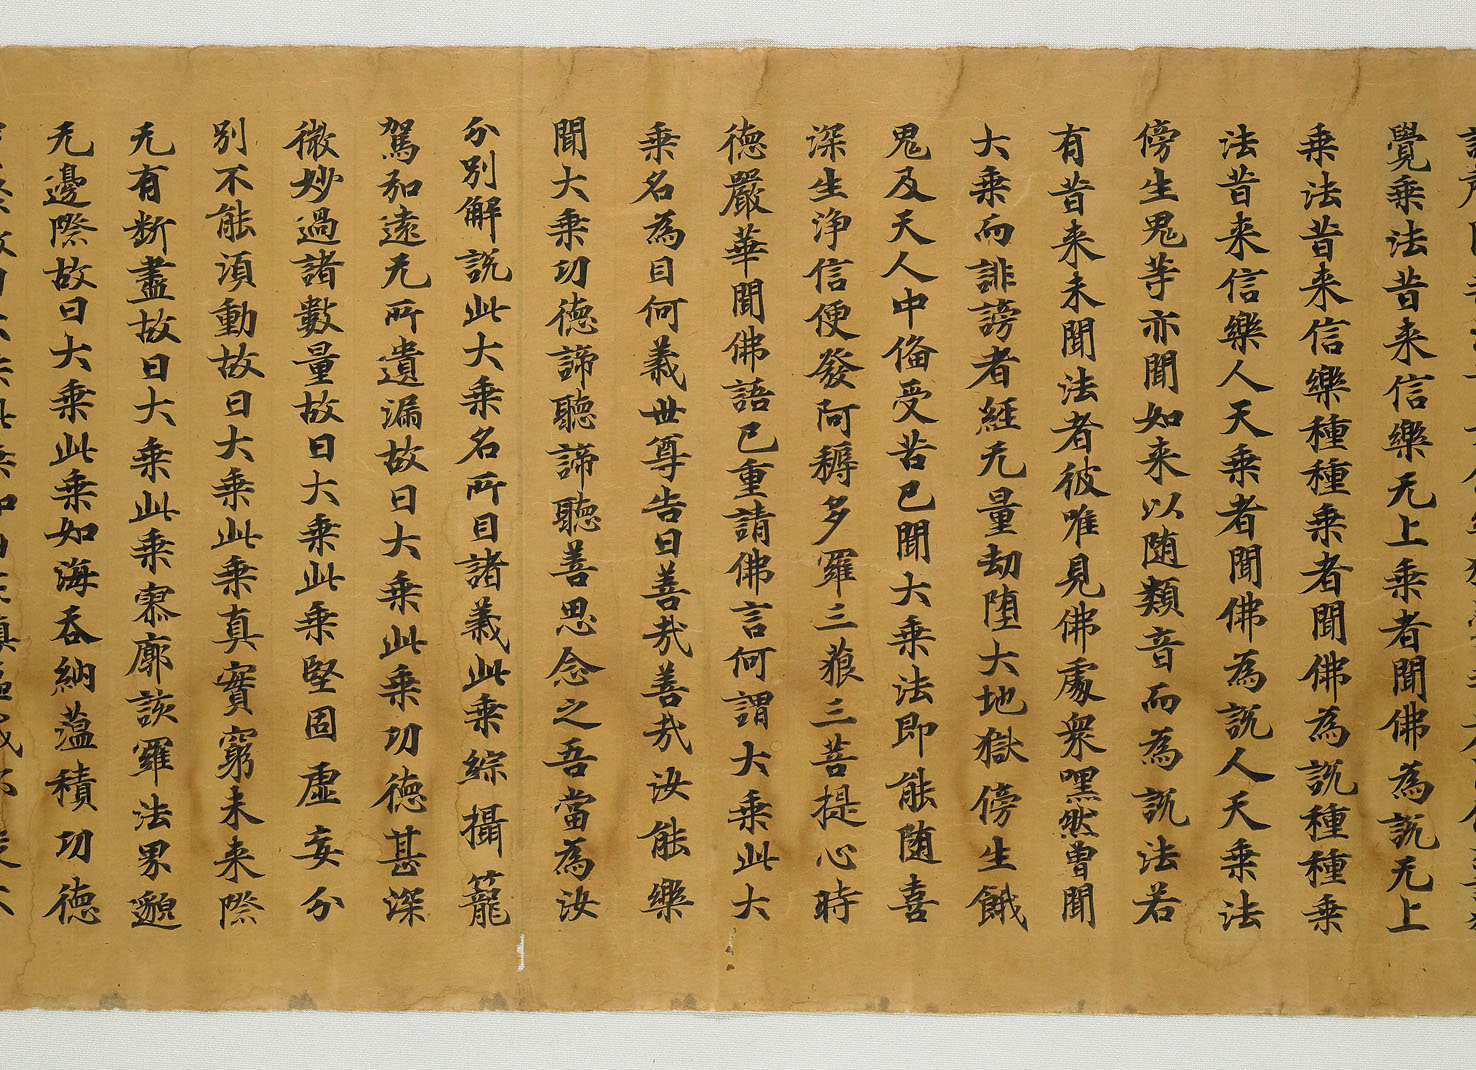 覺乗法昔来信樂无上乗者聞佛為說无上
乗法昔来信樂種種乗者聞佛為說種種乗
法昔来信樂人天乗者聞佛為說人天乗法
傍生鬼等亦聞如来以随類音而為說法若
有昔来未聞法者彼唯見佛處衆嘿然曽聞
大乗而誹謗者經无量劫堕大地獄傍生餓
鬼及天人中俻受苦已聞大乗法即能随喜
深生浄信便發阿耨多羅三藐三菩提心時
德嚴華聞佛語已重請佛言何謂大乗此大
乗名為目何義世尊告曰善哉善哉汝能樂
聞大乗功德諦聽諦聽善思念之吾當為汝
分別解説此大乗名所目諸義此乗綜攝籠
駕和遠无所遺漏故曰大乗此乗功德甚深
微妙過諸數量故曰大乗此乗堅固虚妄分
別不能傾動故曰大乗此乗真實窮未来際
无有断盡故曰大乗此乗寥廓該羅法界邈
无邊際故曰大乗此乗如海吞納藴積功德